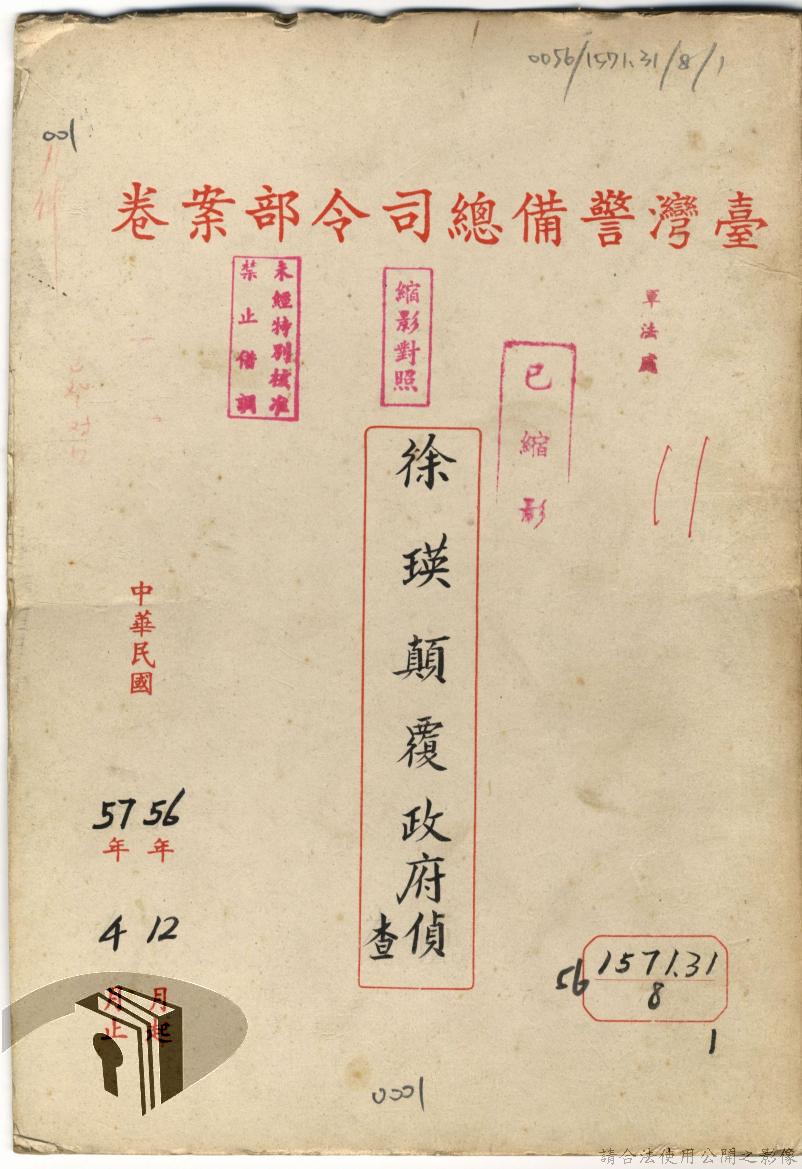 0056/1571.31/8/1
001
臺灣警備總司令部案卷
軍法處
已縮影
縮影對照
未經特別核准
禁止借調
徐瑛顛覆政府偵查
中華民國
56年12月起
57年4月止
56
1571.31
8
1
0001
請合法使用公開之影像